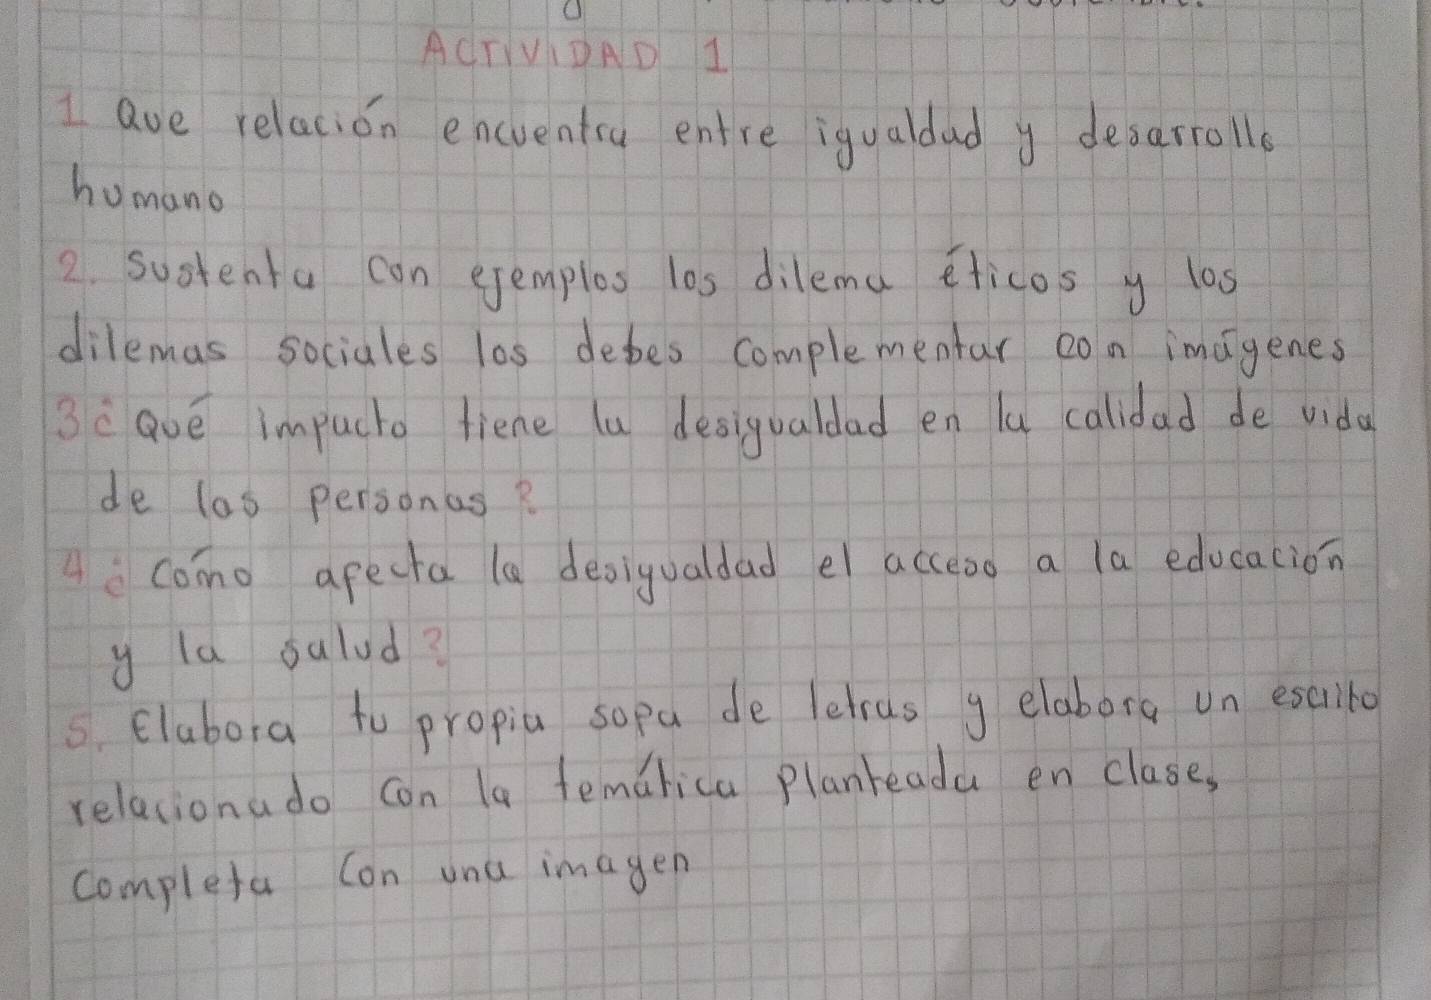 ACTIVIDAD 1
1 Que relación encuentra entre igualdad y desarrollo
humano
2. sustenta con ejemplos los dilema éticos y los
dilemas sociales los debes complementar con imágenes
3 ¿Qué impacto tiene la desigualdad en la calidad de vida
de las personas?
4 ¿cómo afecta la desigualdad el acceso a la educación
y la salud?
5. Elabora tu propia sopa de letras y elabora un escrito
relacionado con la temática planteada en clases
completa con una imagen